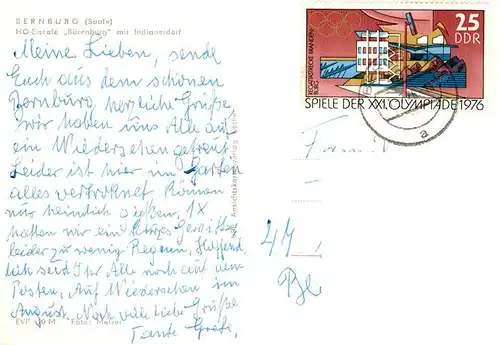 BERNBURG (Saale)
HO-Eiscafé „Bärenburg" mit Indianerdorf
Meine Lieben, sende
Euch aus dem schönen
Bernburg, herzliche Grüße
wir haben uns Alle auf
ein Wiedersehen gefreut
Leider ist hier im Garten
alles vertrocknet können
nur heimlich gießen, 1x
hatten wir ein kurzes Gewitter
leider zu wenig Regen, Hoffend
lich seid Ihr Alle noch auf dem
Posten, Auf Wiedersehen im
August. Noch viele liebe Grüße
Tante Grete,
EVP M Foto:
Ansichtskartenverlag
25
DDR
REGATTASTRECKE BRANDENBURG
SPIELE DER XXI. OLYMPIADE 1976
a
Famil